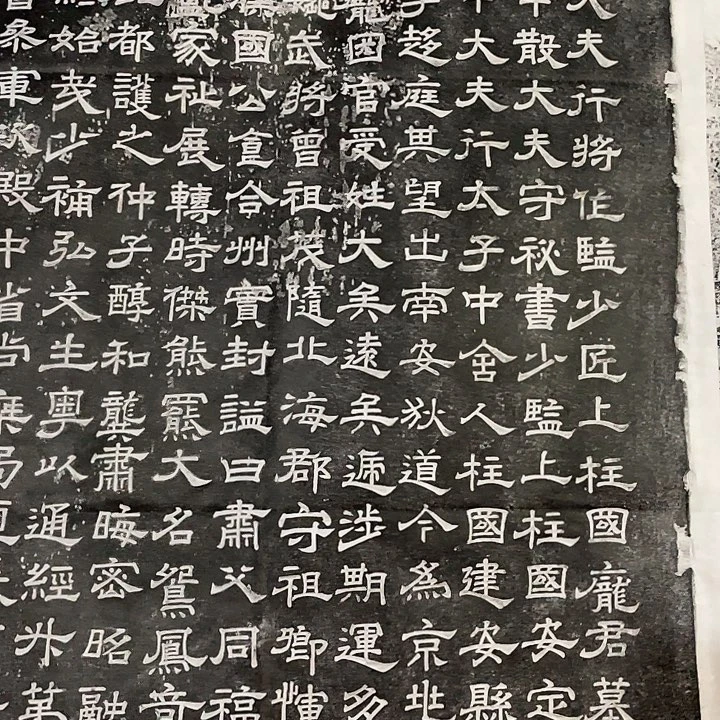 大夫行將作監少匠上柱國龐君墓
散大夫守秘書少監上柱國安定
大夫行太子中舍人柱國建安縣
趍庭其望出南安狄道今為京兆
龐因官受姓大矣遠矣遞涉期運多
武將曾祖茂隨北海郡守祖卿惲
國公食合州實封謚曰肅父同福
家祉展轉時傑熊羆大名鴛鳳
都護之仲子醇和龔肅晦密昭融
始哉少補弘文生粵以通經升第
軍殿中省尚局